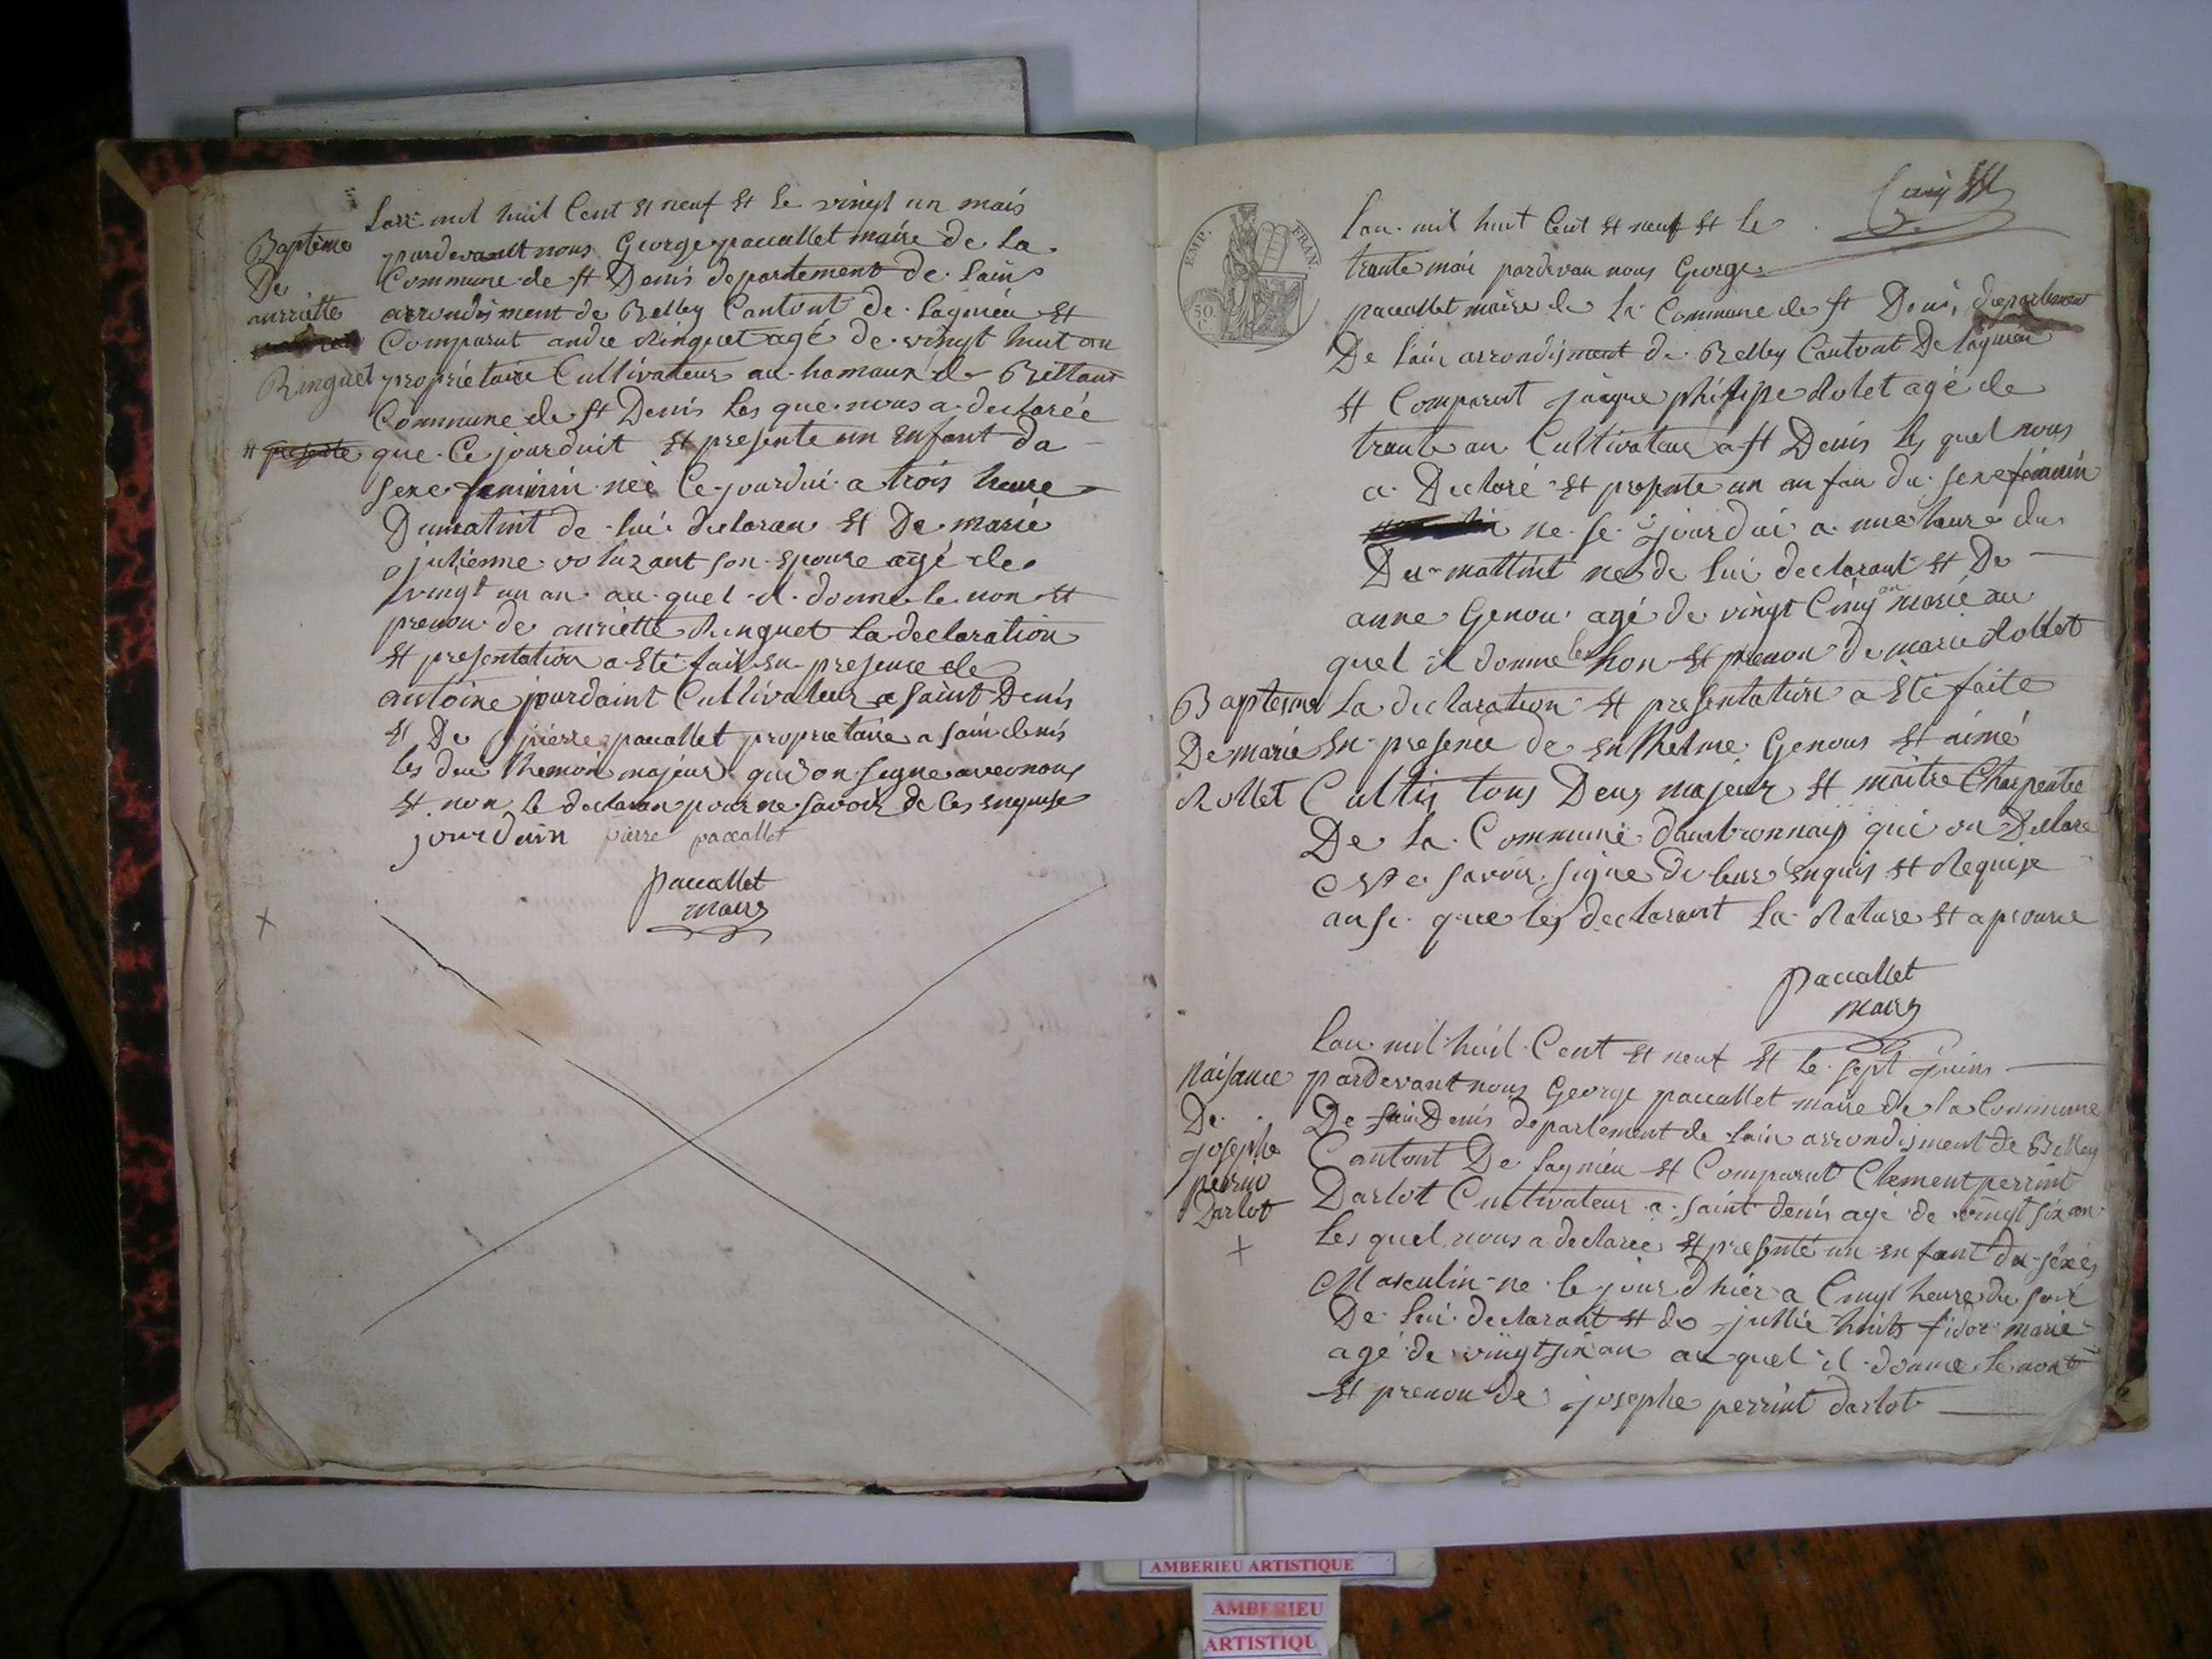 Lan mil huit Cent et neuf et le vingt un mais
Baptême
De
anriette
Ringuet
pardevantt nous George paccallet maire de la
Commune de st Denis departement de Lain
arrondisment de Belley Cantont de Lagnieu et
Comparut andre Ringuet agé de vingt huit an
propriétaire Cultivateur au hamaux de Bettant
Commune de st Denis Les que nous a declarée
et presente
que Ce jourduit et presente un enfant du
sexe feminin neè Ce jourdui a trois heure
Dumatint de lui declaran et De marie
julienne voluzant son epouse agé de
vingt un an au quel il donne le non et
prenon de anriette Ringuet La declaration
et presentation a eté fait en presence de
antoine jourdaint Cultivateur a saint Denis
et De pierre paccallet proprietaire a sain denis
les deu themoin majeur qui on signe avec nous
et non le declaran pour ne savoir de Ces enquise
jourdain pierre paccallet
paccallet
maire
Lan mil huit Cent et neuf et le
EMP. FRAN.
50
C.
trante mai pardevan nous George
paccallet maire de La Commune de st Denis departement
De Lain arrondisment de Belley Cantont De Lagnieu
et Comparut jacque philipe Rolet agé de
trante an Cultivateur a st Denis les quel nous
a Declaré et presente un an fan du sexe féminin
ne se jourdui a une heure du
Du mattint ne de lui declarant et De
anne Genou agé de vingt Cinq an marié au
quel il donne le non et prenon de marie Rollet
Baptesme
De marie
Rollet
La declaration et presentation a eté faite
en presence de enthelme Genous et aimé
Cultis tous Deux majeur et maitre Charpentie
De La Commune dambronnay qui on Declare
savoir signe de leur enquis et Requise
ausi que les declarant La Rature et aprouvé
paccallet
maire
Lan mil huit Cent et neuf et le sept juins
Naisance
De
josephe
perrin
Darlot
pardevant nous George paccallet maire de la Commune
De sain Denis departement de Lain arrondisment de Belley
Cantont De Lagnieu et Comparut Clement perrint
Darlot Cultivateur a saint denis agé de vingt six an
les quel nous a declarée et presenté un enfant du séxes
Masculin ne le jour dhier a Cinq heure du soir
De lui declarant et de jullie fidor marie
agé de vingt six an au quel il donne le nont
et prenon de josephe perrint darlot
AMBERIEU ARTISTIQUE
AMBERIEU
ARTISTIQU